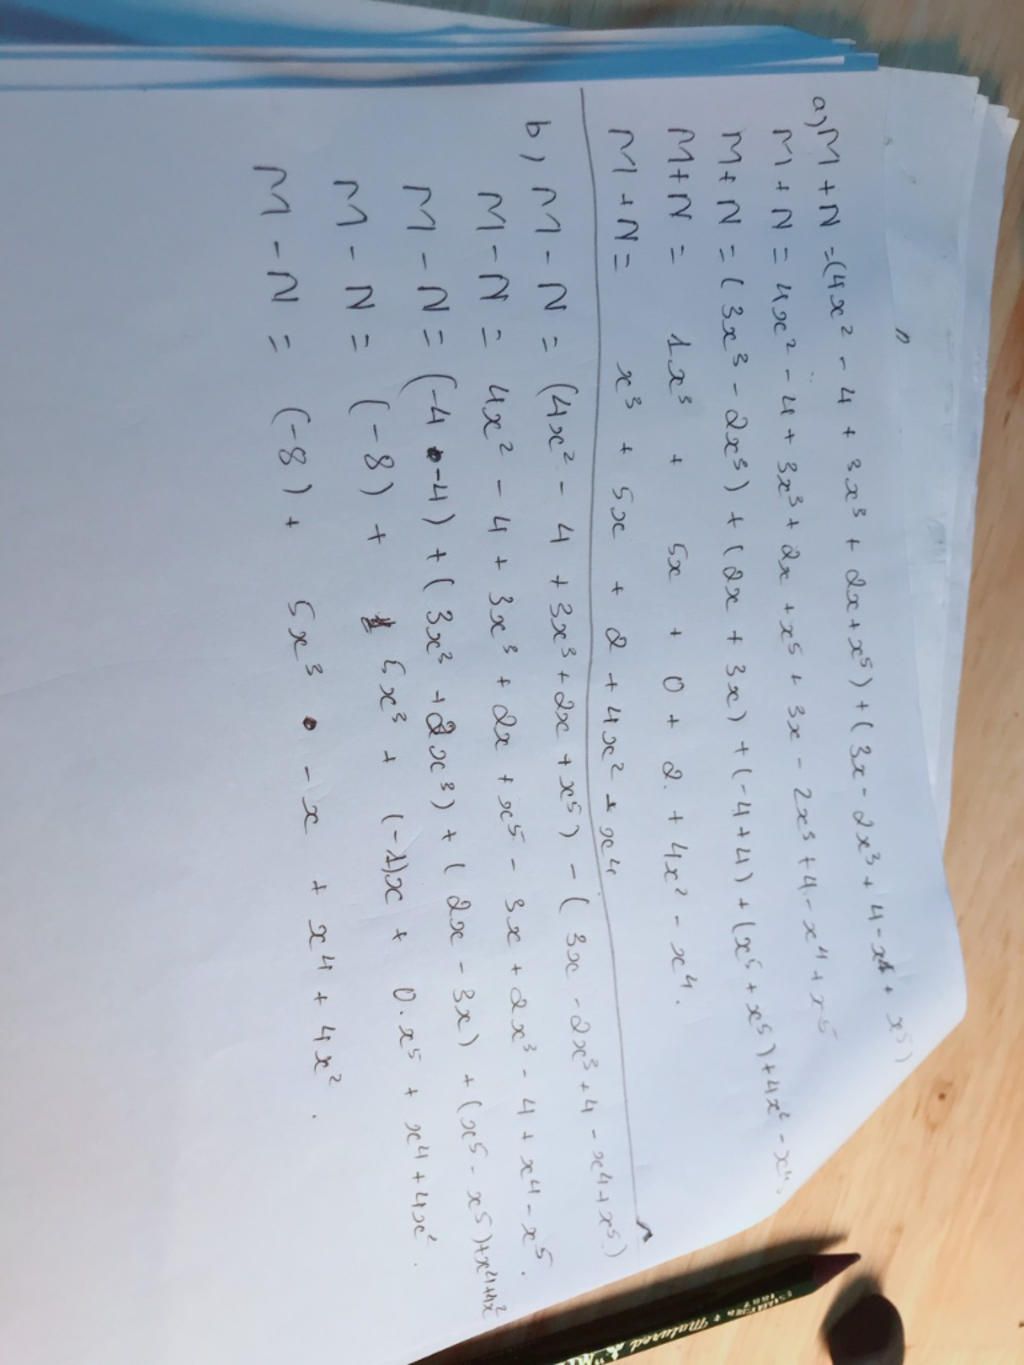 a) M + N = (4x² - 4 + 3x³ + 2x + x⁵) + (3x - 2x³ + 4 - x⁴ + x⁵)
M + N = 4x² - 4 + 3x³ + 2x + x⁵ + 3x - 2x³ + 4 - x⁴ + x⁵
M + N = (3x³ - 2x³) + (2x + 3x) + (-4 + 4) + (x⁵ + x⁵) + 4x² - x⁴.
M + N = 1x³ + 5x + 0 + 2 + 4x² - x⁴.
M + N = x³ + 5x + 2 + 4x² - x⁴.
b) M - N = (4x² - 4 + 3x³ + 2x + x⁵) - (3x - 2x³ + 4 - x⁴ + x⁵)
M - N = 4x² - 4 + 3x³ + 2x + x⁵ - 3x + 2x³ - 4 + x⁴ - x⁵.
M - N = (-4 -4) + (3x³ + 2x³) + (2x - 3x) + (x⁵ - x⁵) + x⁴ + 4x²
M - N = (-8) + 5x³ + (-1)x + 0.x⁵ + x⁴ + 4x².
M - N = (-8) + 5x³ - x + x⁴ + 4x².
1887